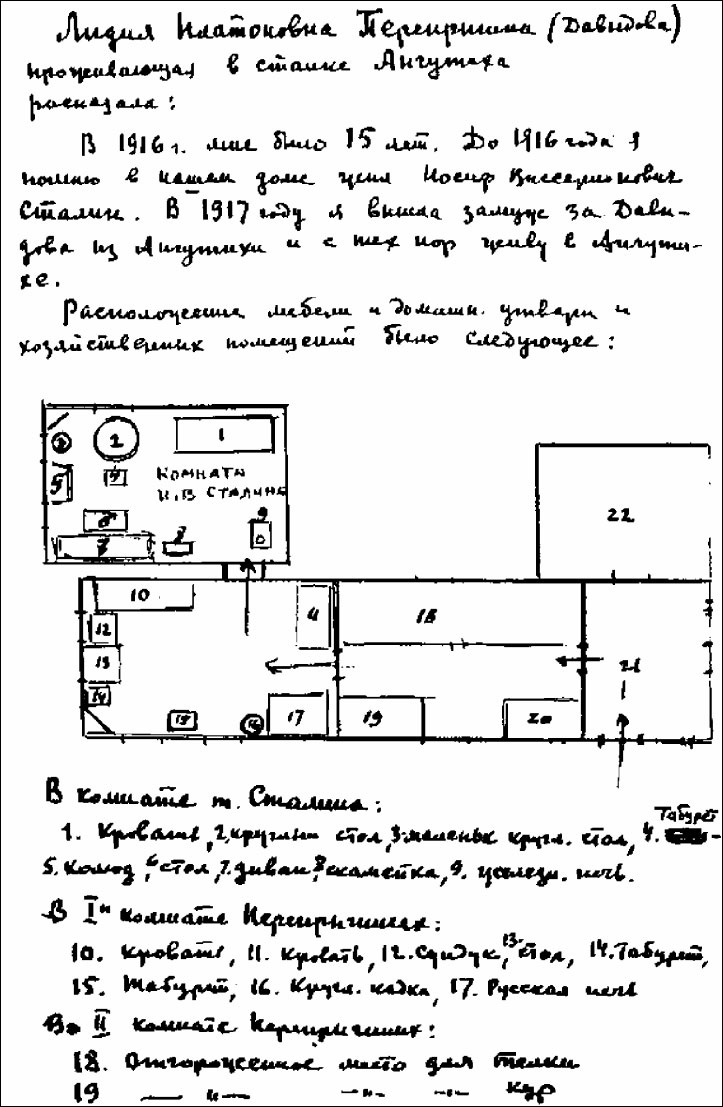 Лидия Платоновна Перепрыгина (Давыдова)
проживающая в станке Ангутиха
рассказала:
В 1916 г. мне было 15 лет. До 1916 года я
помню в нашем доме жил Иосиф Виссарионович
Сталин. В 1917 году я вышла замуж за Давы-
дова из Ангутихи и с тех пор живу в Ангути-
хе.
Расположение мебели и домашн. утвари и
хозяйственных помещений было следующее:
3
2
1
5
4
КОМНАТА
И.В СТАЛИНА
6
7
8
9
22
10
12
13
14
15
16
17
4
18
19
20
21
В комнате т. Сталина:
Табурет
1. Кровать, 2. круглый стол, 3. маленьк кругл. стол, 4.
5. Комод, 6 стол, 7. диван, 8 скамейка, 9. железн. печь.
В Iй комнате Перепрыгиных:
10. Кровать, 11. Кровать, 12. Сундук, 13. стол, 14. Табурет,
15. Табурет, 16. Кругл. кадка, 17. Русская печь
Во II комнате Перепрыгиных:
18. Отгороженное место для телки
19 — „— —„— —„— кур